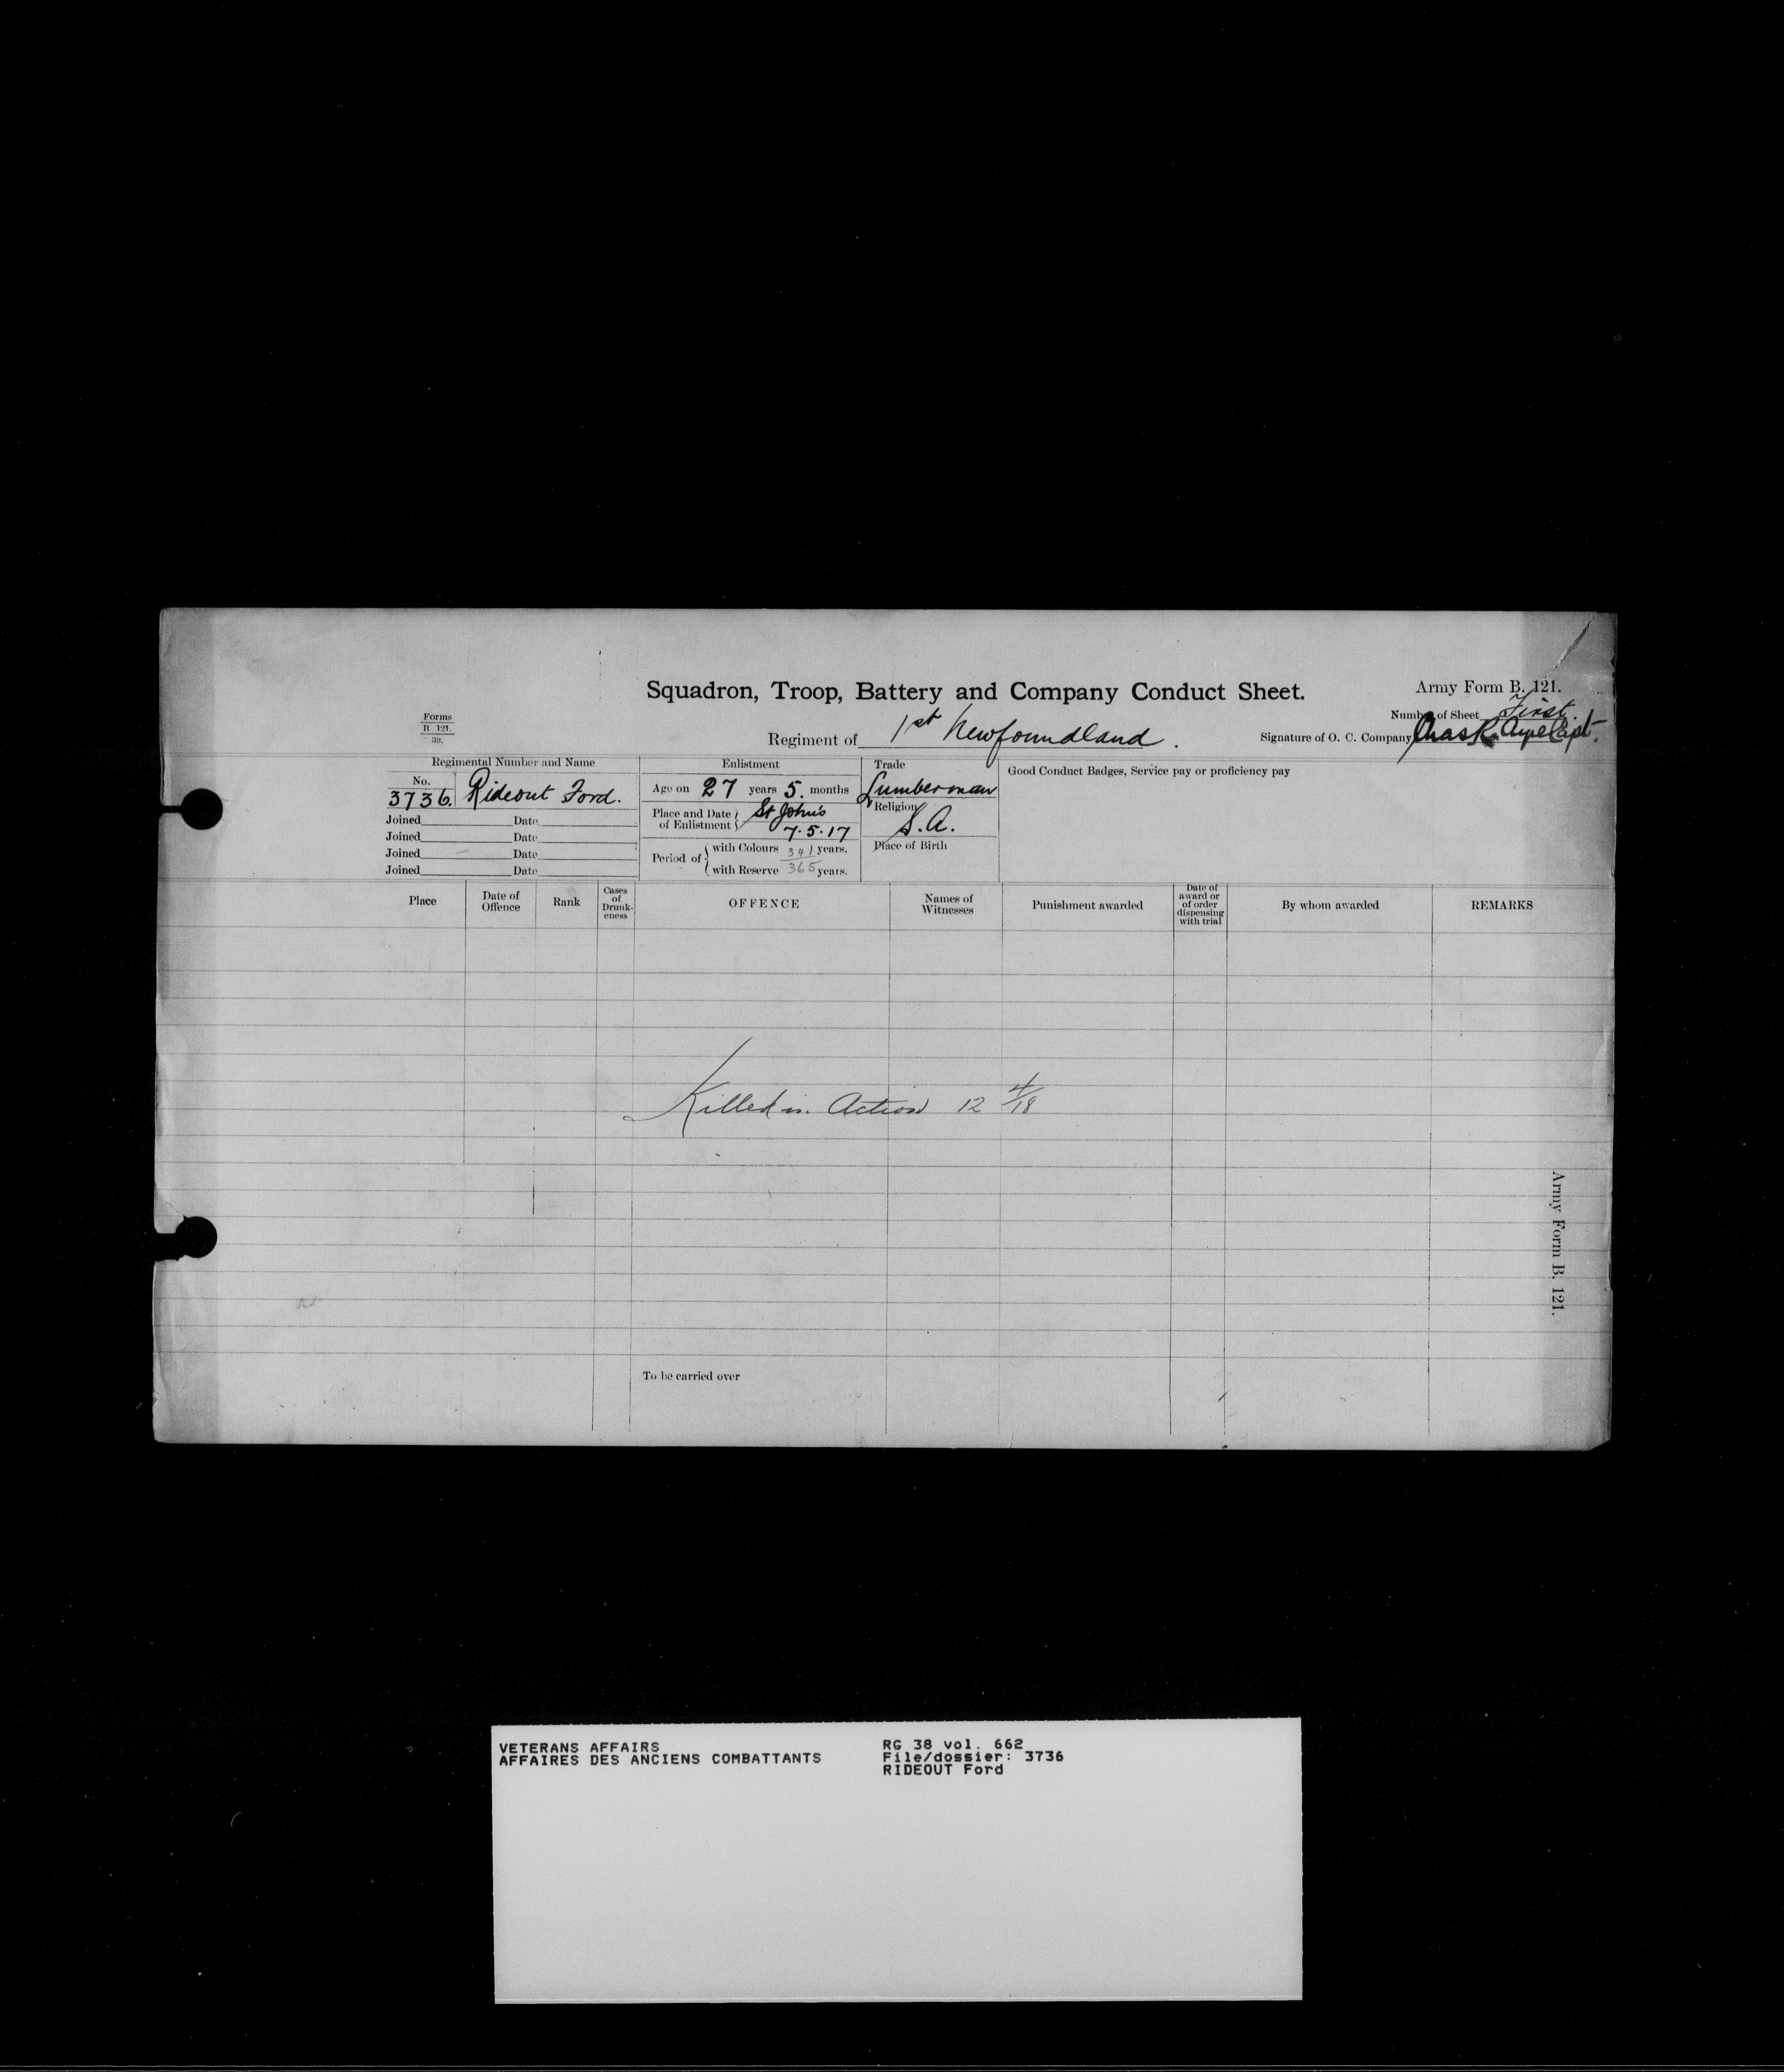 Squadron, Troop, Battery and Company Conduct Sheet.
Army Form B. 121.
Forms
B 121.
39.
Number of Sheet First.
Regiment of 1st Newfoundland.
Signature of O. C. Company Chas R. Ayre Capt.
Regimental Number and Name
No.
3736. Rideout Ford.
Joined Date
Joined Date
Joined Date
Joined Date
Enlistment
Age on 27 years 5. months
Place and Date of Enlistment St John's
7.5.17
Period of with Colours 341 years.
with Reserve 365 years.
Trade
Lumberman
Religion
S.A.
Place of Birth
Good Conduct Badges, Service pay or proficiency pay
Place
Date of Offence
Rank
Cases of Drunk-eness
OFFENCE
Names of Witnesses
Punishment awarded
Date of award or of order dispensing with trial
By whom awarded
REMARKS
Killed in Action 12 4/18
Army Form B. 121.
To be carried over
VETERANS AFFAIRS
AFFAIRES DES ANCIENS COMBATTANTS
RG 38 vol. 662
File/dossier: 3736
RIDEOUT Ford